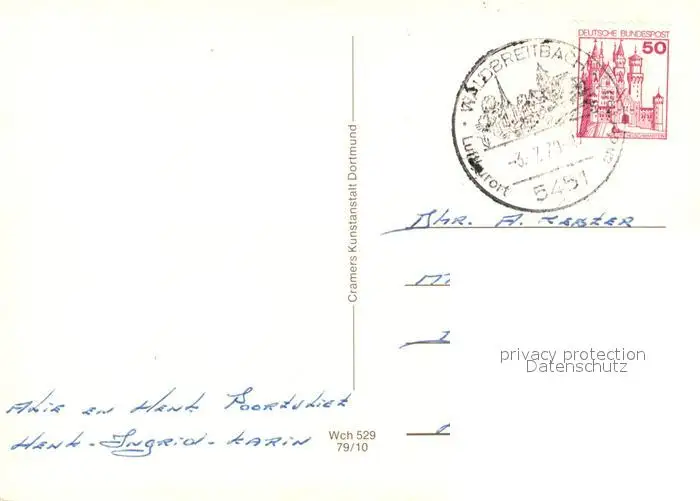 DEUTSCHE BUNDESPOST
50
WALDBREITBACH
Luftkurort
5451
Cramers Kunstanstalt Dortmund
A.
privacy protection
Datenschutz
Alie en Henk Poortvliet
Henk - Ingrid - Karin
Wch 529
79/10